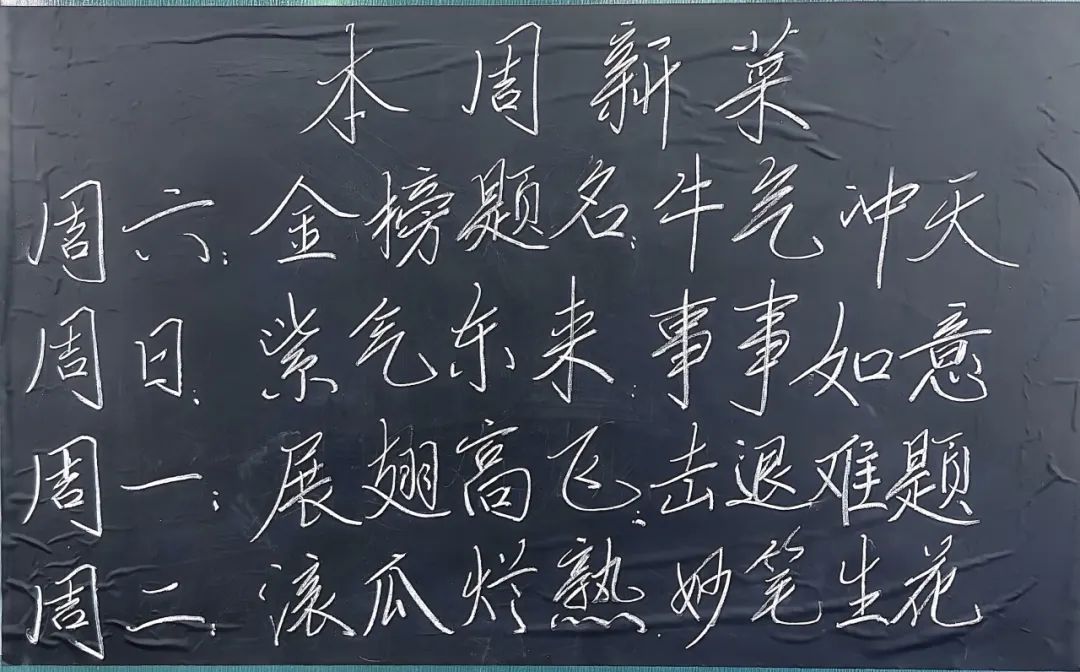 本周新菜
周六:金榜题名;牛气冲天
周日:紫气东来;事事如意
周一:展翅高飞;击退难题
周二:滚瓜烂熟;妙笔生花